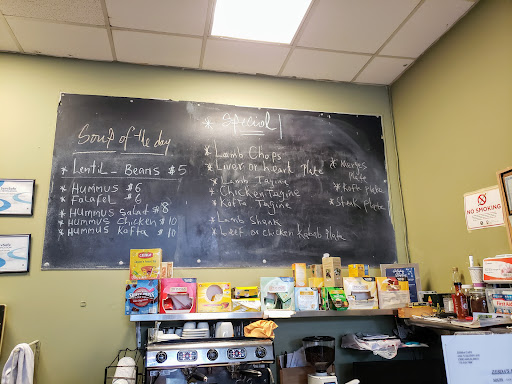 Soup of the day
Lentil - Beans $5
* Hummus $6
* Falafel $6
* Hummus Salad $8
* Hummus Chicken $10
* Hummus Kofta $10
* Special
* Lamb Chops
* Liver or heart Plate
* Lamb Tagine
* Chicken Tagine
* Kofta Tagine
* Lamb Shank
* Beef or Chicken Kabab Plate
Plate
* Kofta Plate
* Steak Plate
NO SMOKING